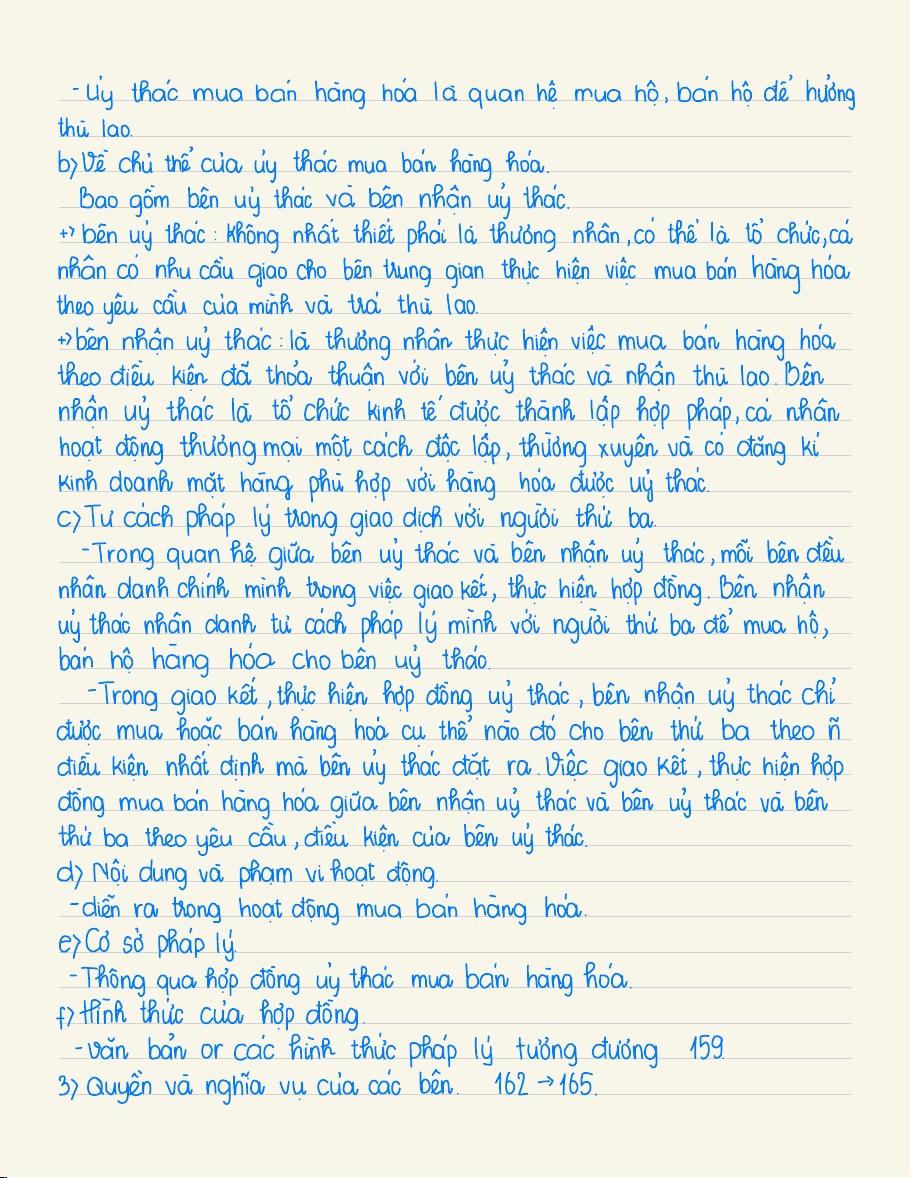 - Uỷ thác mua bán hàng hóa là quan hệ mua hộ, bán hộ để hưởng
thù lao.
b) Về chủ thể của ủy thác mua bán hàng hóa.
Bao gồm bên uỷ thác và bên nhận uỷ thác.
+> bên uỷ thác : không nhất thiết phải là thương nhân, có thể là tổ chức, cá
nhân có nhu cầu giao cho bên trung gian thực hiện việc mua bán hàng hóa
theo yêu cầu của mình và trả thù lao.
+> bên nhận uỷ thác : là thương nhân thực hiện việc mua bán hàng hóa
theo điều kiện đã thỏa thuận với bên uỷ thác và nhận thù lao. Bên
nhận uỷ thác là tổ chức kinh tế được thành lập hợp pháp, cá nhân
hoạt động thương mại một cách độc lập, thường xuyên và có đăng kí
kinh doanh mặt hàng phù hợp với hàng hóa được uỷ thác.
c) Tư cách pháp lý trong giao dịch với người thứ ba.
- Trong quan hệ giữa bên uỷ thác và bên nhận uỷ thác, mỗi bên đều
nhân danh chính mình trong việc giao kết, thực hiện hợp đồng. Bên nhận
uỷ thác nhân danh tư cách pháp lý mình với người thứ ba để mua hộ,
bán hộ hàng hóa cho bên uỷ tháo.
- Trong giao kết, thực hiện hợp đồng uỷ thác, bên nhận uỷ thác chỉ
được mua hoặc bán hàng hoá cụ thể nào đó cho bên thứ ba theo ñ
điều kiện nhất định mà bên ủy thác đặt ra. Việc giao kết, thực hiện hợp
đồng mua bán hàng hóa giữa bên nhận uỷ thác và bên uỷ thác và bên
thứ ba theo yêu cầu, điều kiện của bên uỷ thác.
d) Nội dung và phạm vi hoạt động.
- diễn ra trong hoạt động mua bán hàng hóa.
e) Cơ sở pháp lý.
- Thông qua hợp đồng uỷ thác mua bán hàng hóa.
f) Hình thức của hợp đồng.
- văn bản or các hình thức pháp lý tương đương 159.
3) Quyền và nghĩa vụ của các bên. 162 → 165.